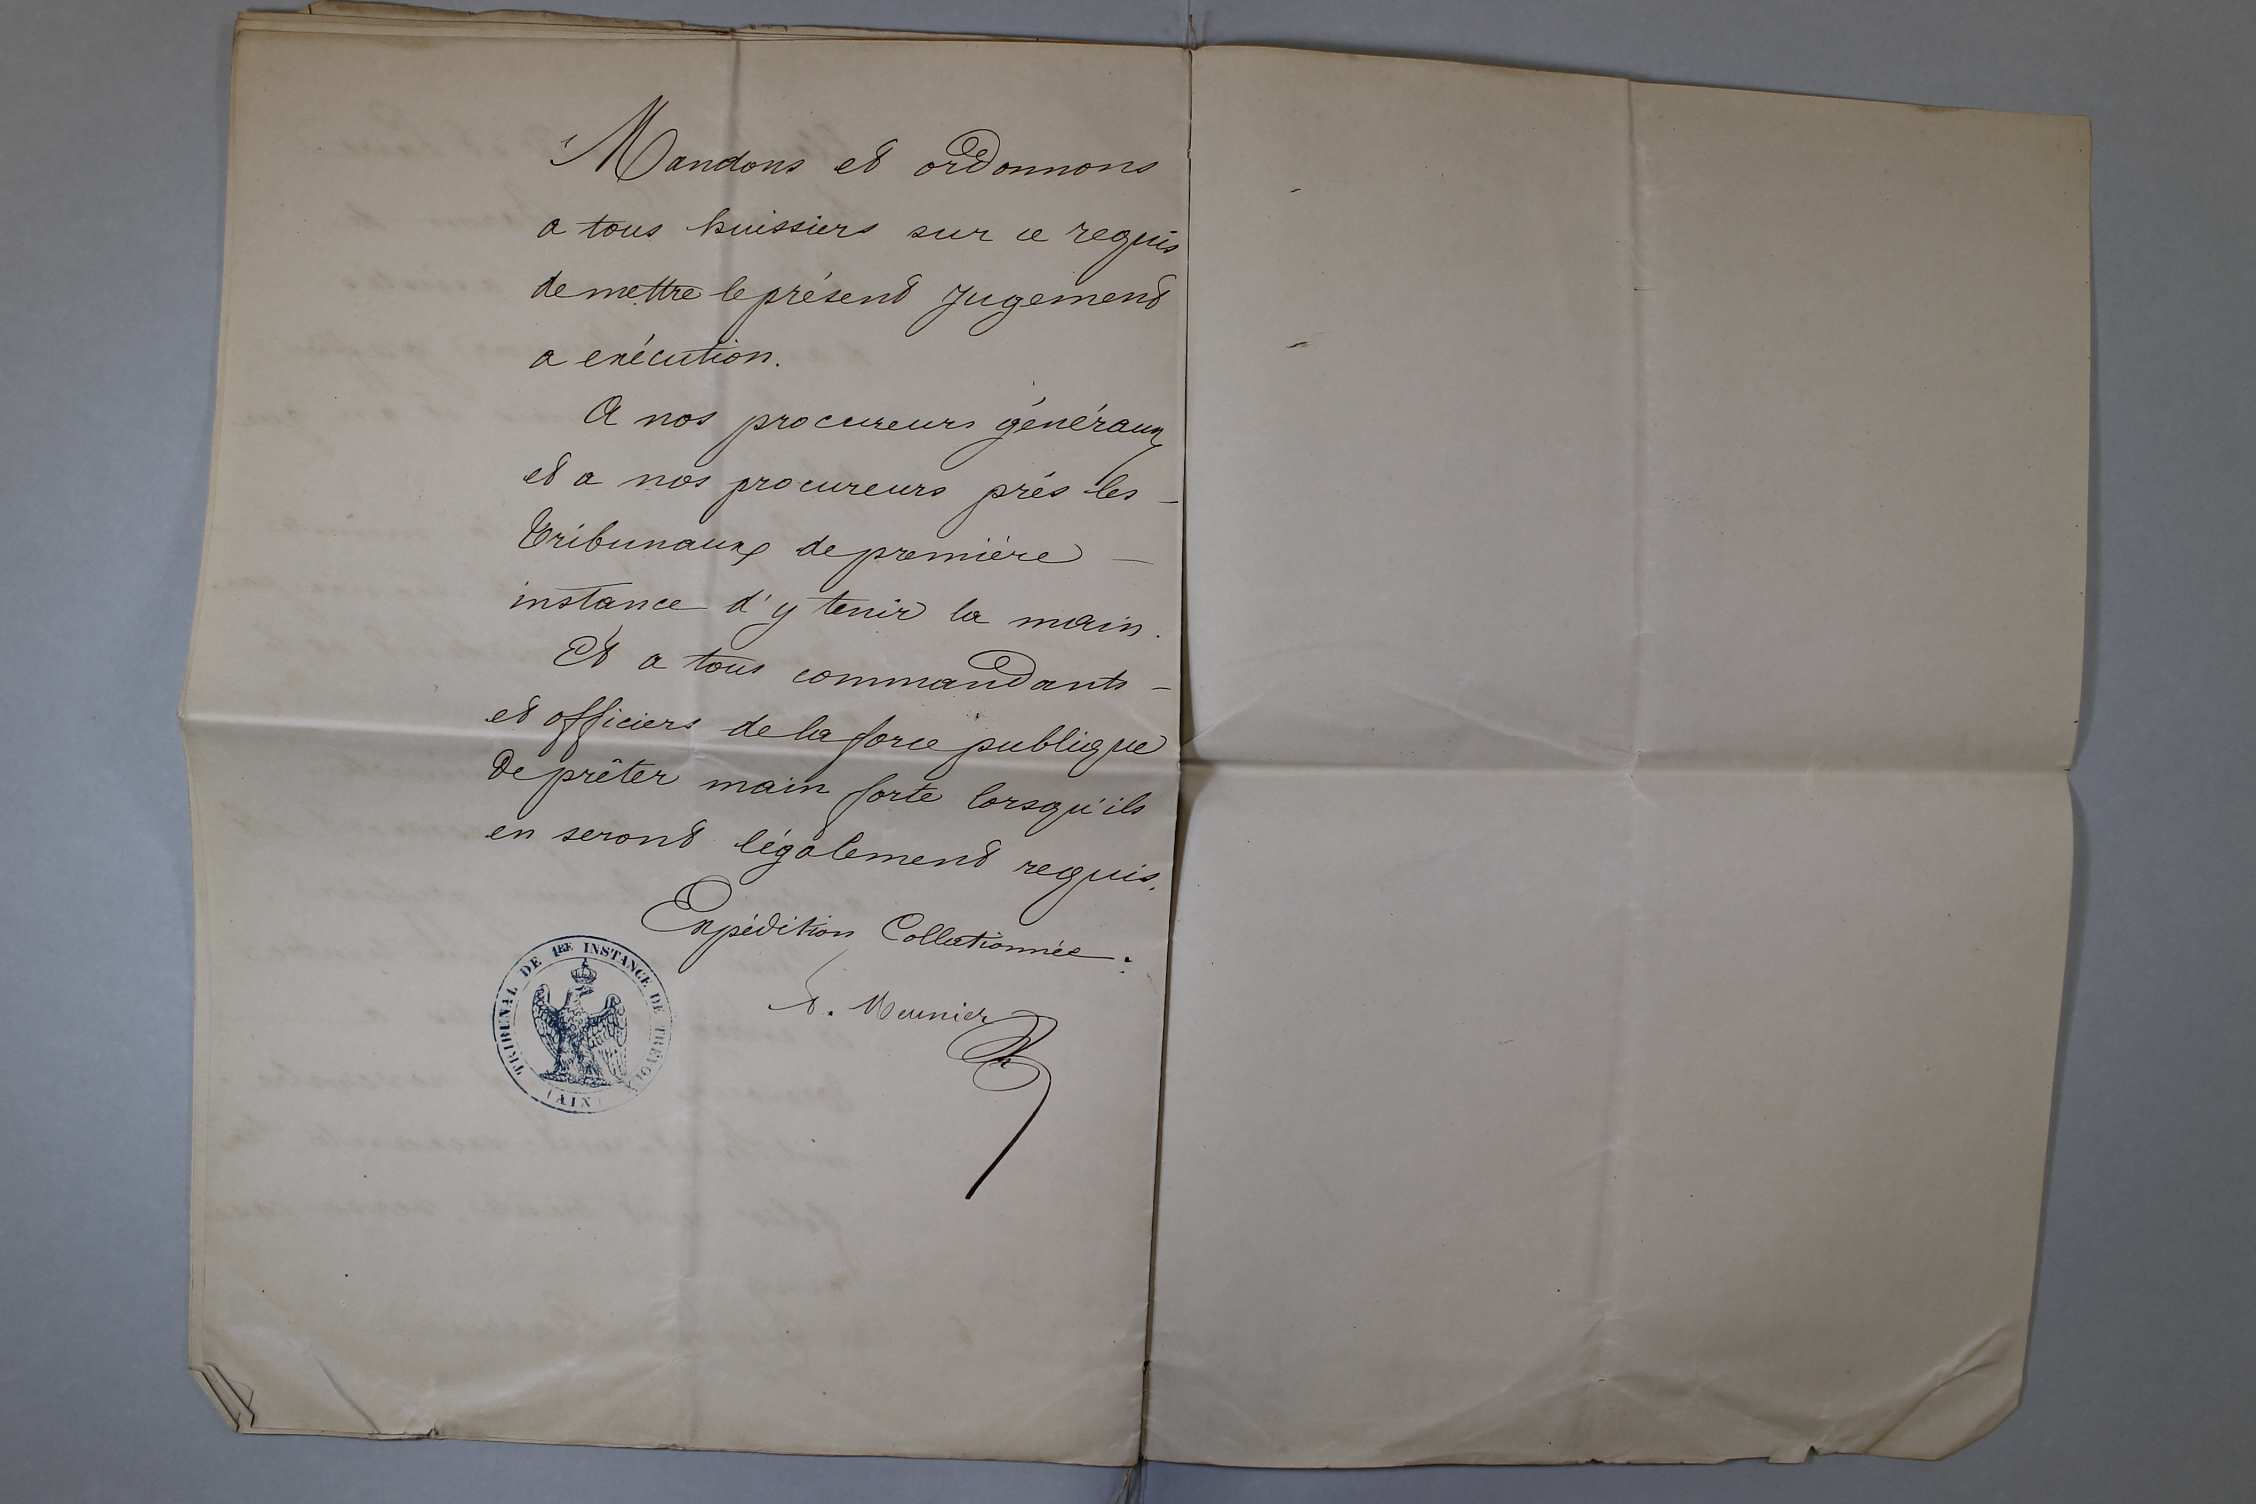 Mandons et ordonnons
a tous huissiers sur ce requis
de mettre le présent Jugement
a exécution.
A nos procureurs généraux
et a nos procureurs près les –
Tribunaux de première –
instance d'y tenir la main.
Et a tous commandants –
et officiers de la force publique
de prêter main forte lorsqu'ils
en seront légalement requis.
Expédition Collationnée :
Meunier
TRIBUNAL DE 1RE INSTANCE DE TREVOUX
(AIN)